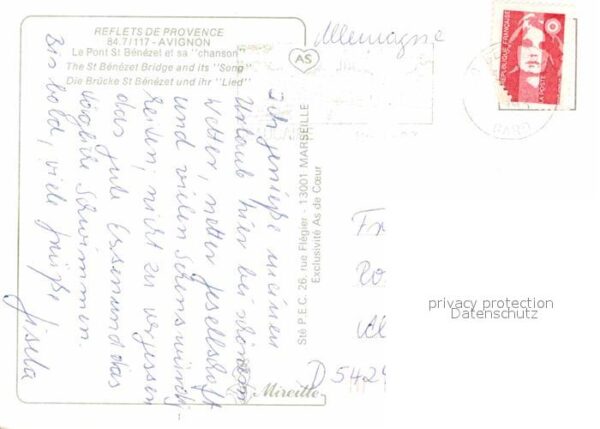 REFLETS DE PROVENCE
84.7/117 - AVIGNON
Le Pont St Bénézet et sa "chanson"
The St Bénézet Bridge and its "Song"
Die Brücke St Bénézet und ihr "Lied"
AS
Allemagne
RÉPUBLIQUE FRANÇAISE
LA POSTE
Ich genieße meinen
Urlaub hier bei schönem
Wetter, netter Gesellschaft
und vielen Sehenswürdig-
keiten, nicht zu vergessen
das gute Essen und das
tägliche Schwimmen.
Bis bald, viele Grüße!
Gisela
Sté P.E.C. 26, rue Flégier - 13001 MARSEILLE
Exclusivité As de Cœur
Mireille
Fr
D 5424
privacy protection
Datenschutz